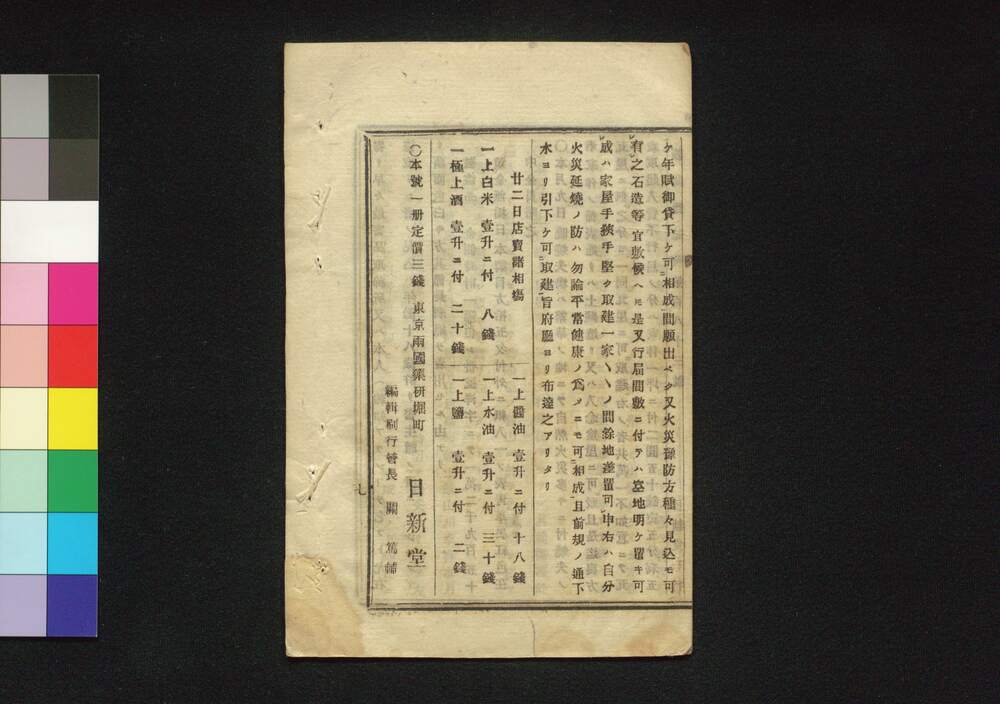 ケ年賦御貸下ケ可相成間願出ベク又火災豫防方種々見込モ可
有之石造等宜敷候ヘ𪜈是又行届間敷ニ付テハ空地明ケ置キ可
成ハ家屋手狹手堅ク取建一家〻ノ間餘地差置可申右ハ自分
火災延燒ノ防ハ勿論平常健康ノ爲メニモ可相成且前規ノ通下
水ヨリ引下ケ可取建旨府廳ヨリ布達之アリタリ
廿二日店賣諸相塲
一上醤油 壹升ニ付 十八錢
一上白米 壹升ニ付 八錢
一上水油 壹升ニ付 三十錢
一極上酒 壹升ニ付 二十錢
一上鹽 壹升ニ付 二錢
〇本號一册定價三錢 東京兩國藥研堀町
日新堂
編輯刷行曾長 關 篤輔
七